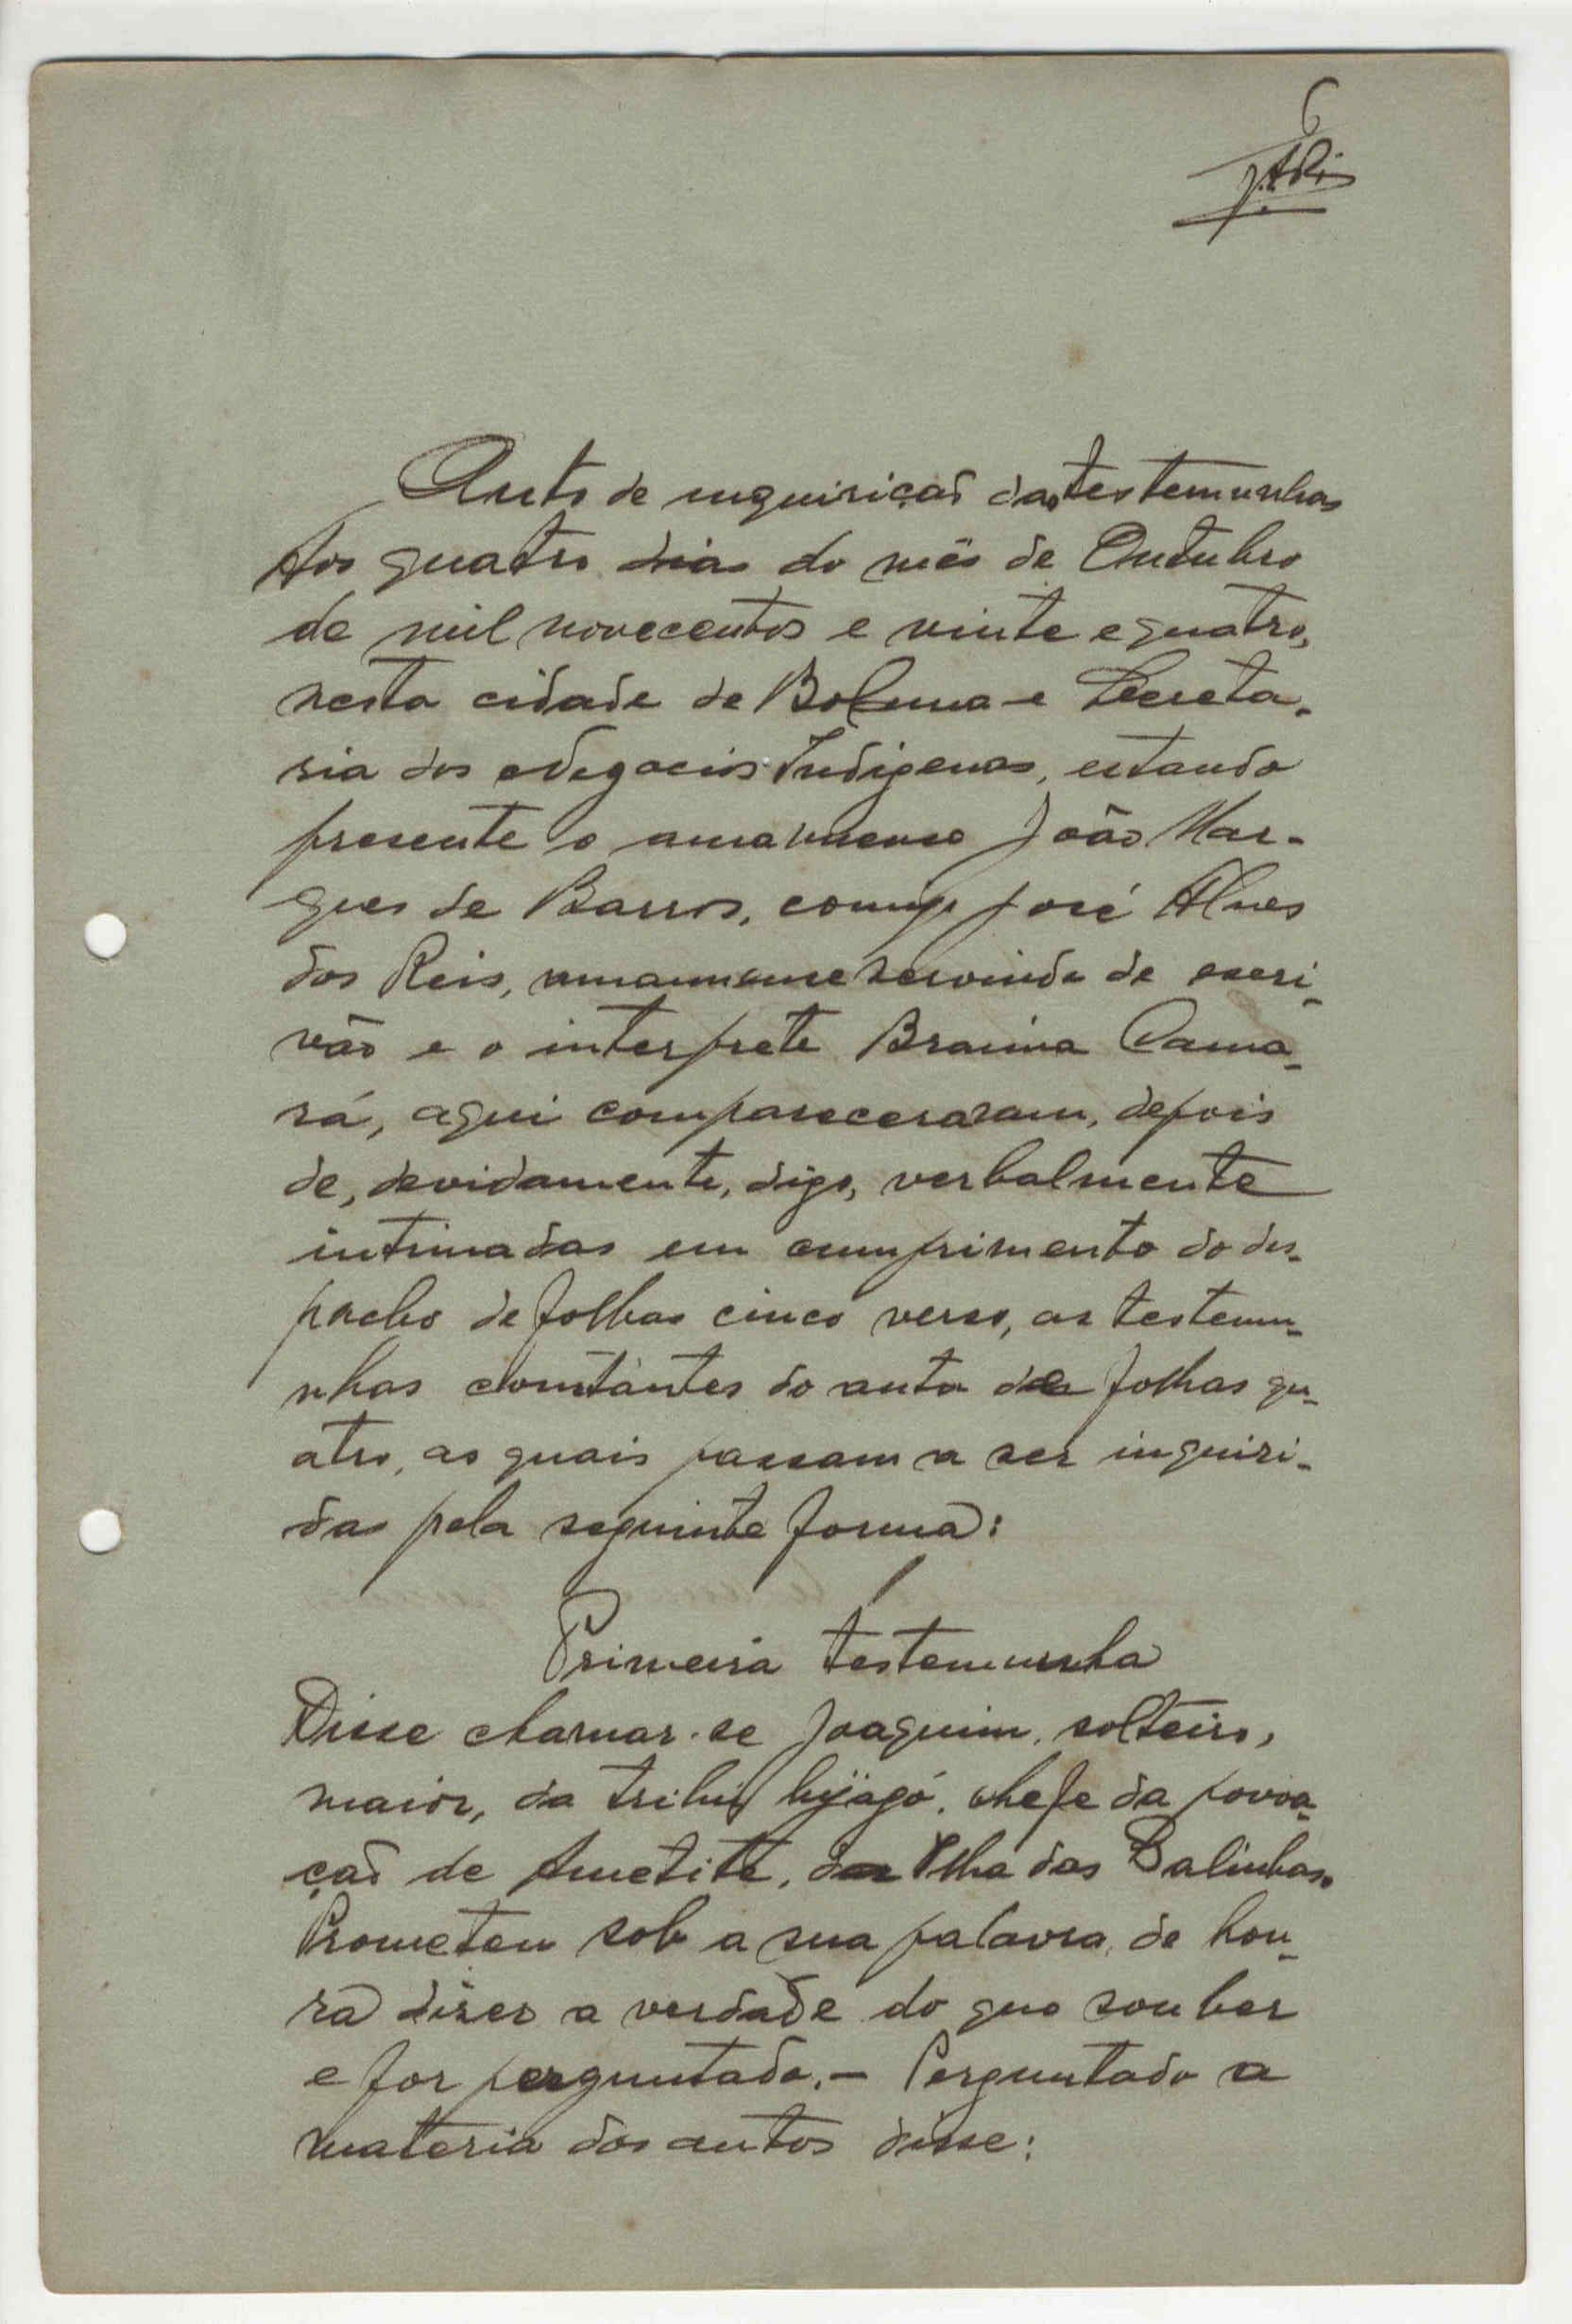 6
J.ARis
Auto de inquirição das testemunhas
Aos quatro dias do mês de Outubro
de mil novecentos e vinte e quatro,
nesta cidade de Bolama e Secreta-
ria dos Negocios Indigenas, estando
presente o amanuense João Mar-
ques de Barros, comigo José Alves
dos Reis, amanuense servindo de escri-
vão e o interprete Braima Cama-
rá, aqui compareceraram, depois
de, devidamente, digo, verbalmente
intimadas em cumprimento do des-
pacho de folhas cinco verso, as testemu-
nhas constantes do auto de folhas qu-
atro, as quais passam a ser inquiri-
das pela seguinte forma:
Primeira testemunha
Disse chamar-se Joaquim, solteiro,
maior, da tribu bijagó, chefe da povoa-
ção de Ametite, da Ilha das Galinhas.
Prometeu sob a sua palavra de hon-
ra dizer a verdade do que souber
e for perguntado.- Perguntado a
materia dos autos disse: